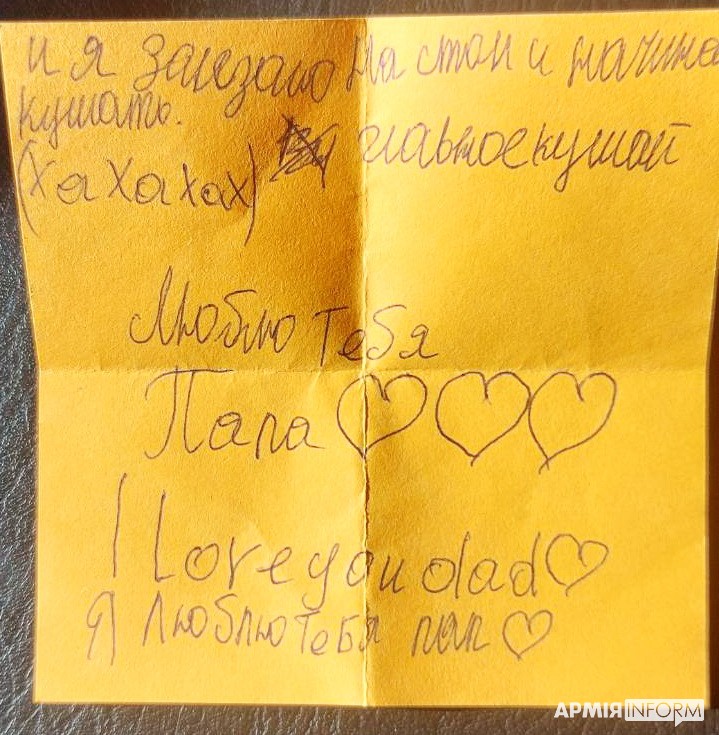 и я залезаю на стол и начина
кушать.
(ХаХаХах) главное кушай
Люблю тебя
Папа ♡♡♡
I Love you dad♡
Я люблю тебя пап♡
АРМІЯINFORM